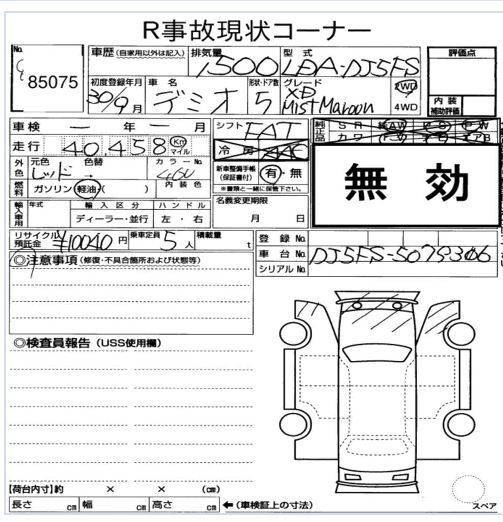 R事故現状コーナー
No. 85075
車歴 (自家用以外は記入) 排気量 1500 型式 LDA-DJ5FS
評価点
初度登録年月 30/9月 車名 デミオ 形状・ドア数 5 グレード XD Mist Maroon 2WD 4WD
内装補助評価
車検 ー 年 ー 月
シフト FAT
純正品 SR AW PS PW
カワ
走行 40,458 Km マイル
冷房 AAC
無効
外色 元色 レッド 色替 カラーNo. 46V
新車整備手帳(保証書付) 有・無
※書類と一緒に保管下さい。
燃料 ガソリン・軽油・( ) 内装色
輸入車用 年式 輸入区分 ハンドル
ディーラー・並行 左・右
名義変更期限
月 日
リサイクル預託金 ¥10040円 乗車定員 5人 積載量 t
登録No.
車台No. DJ5FS-5079306
シリアルNo.
◎注意事項 (修復・不具合箇所および状態等)
◎検査員報告 (USS使用欄)
【荷台内寸】約 × × (cm)
長さ cm 幅 cm 高さ cm ←(車検証上の寸法)
スペア